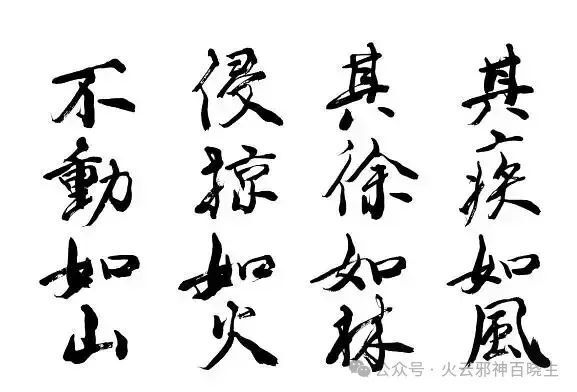 其疾如風
其徐如林
侵掠如火
不動如山
公众号·火云邪神百晓生